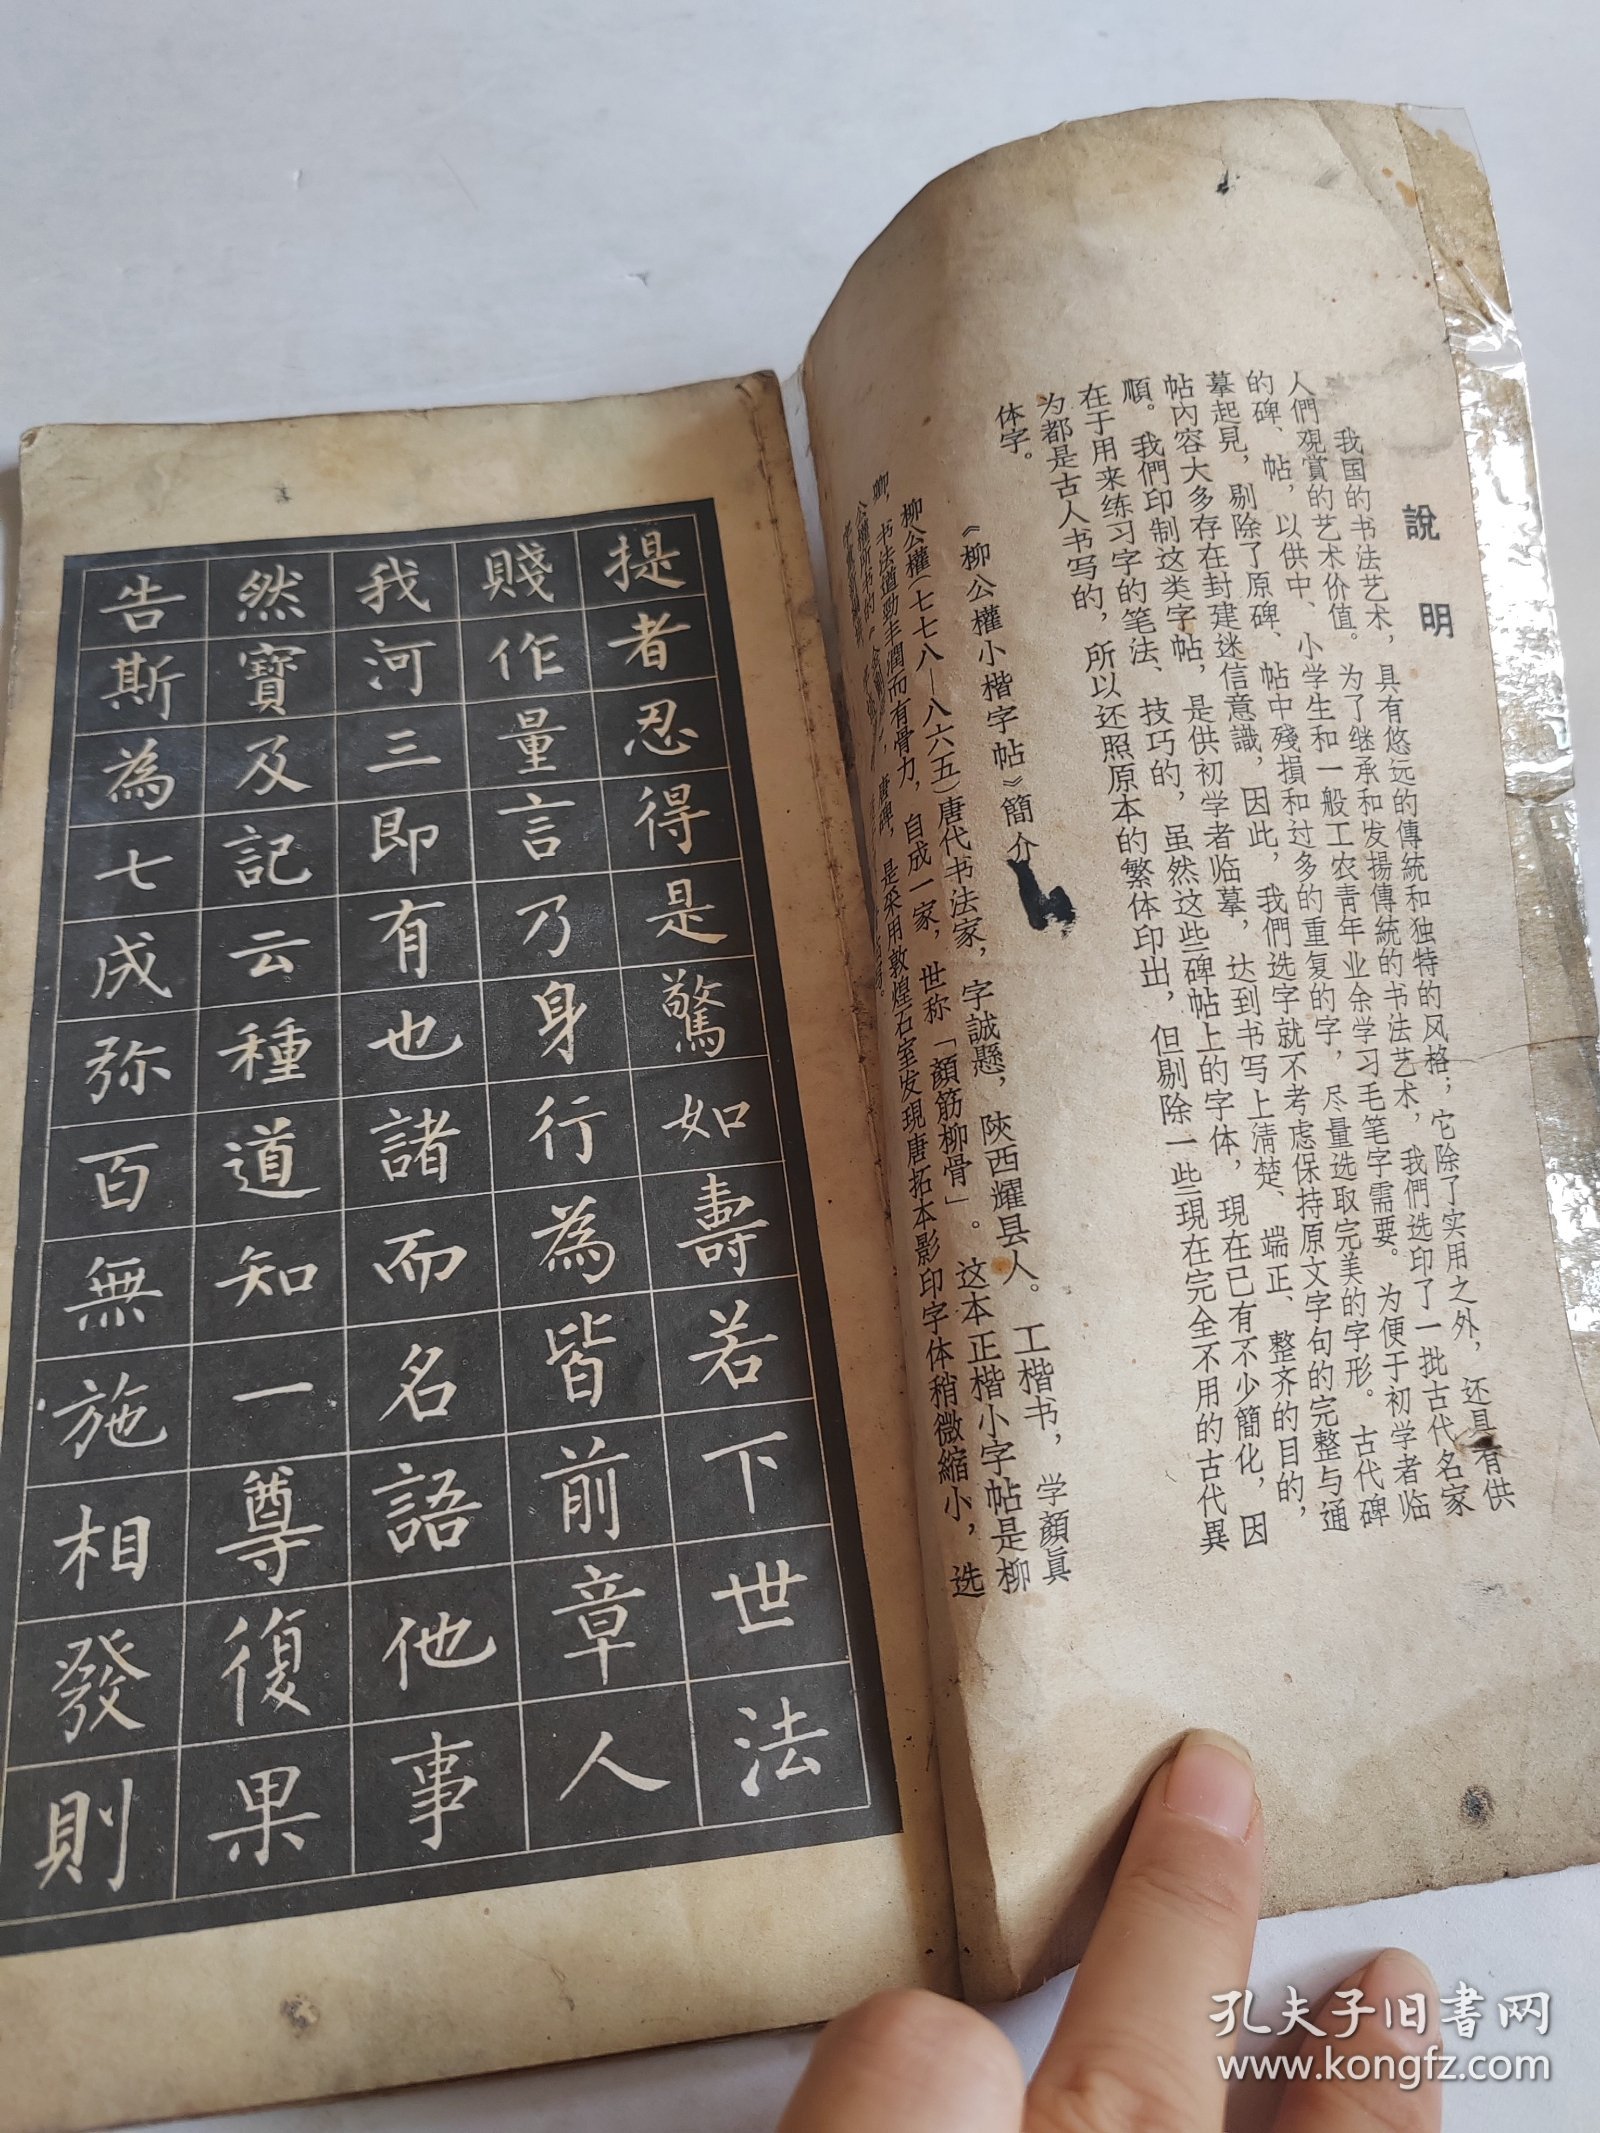 說明
我国的书法艺术，具有悠远的傳統和独特的风格；它除了实用之外，还具有供
人們观賞的艺术价值。为了继承和发揚傳統的书法艺术，我們选印了一批古代名家
的碑、帖，以供中、小学生和一般工农青年业余学习毛笔字需要。为便于初学者临
摹起見，剔除了原碑、帖中殘損和过多的重复的字，尽量选取完美的字形。古代碑
帖內容大多存在封建迷信意識，因此，我們选字就不考虑保持原文字句的完整与通
順。我們印制这类字帖，是供初学者临摹，达到书写上清楚、端正、整齐的目的，
在于用来练习字的笔法、技巧的，虽然这些碑帖上的字体，現在已有不少簡化，因
为都是古人书写的，所以还照原本的繁体印出，但剔除一些現在完全不用的古代異
体字。
《柳公權小楷字帖》簡介
柳公權（七七八—八六五）唐代书法家，字誠懸，陝西耀县人。工楷书，学顏眞
卿，书法遒勁丰潤而有骨力，自成一家，世称「顏筋柳骨」。这本正楷小字帖是柳
公權所书的
唐碑，是采用敦煌石室发現唐拓本影印字体稍微縮小，选
提者忍得是驚如壽若下世法
賤作量言乃身行為皆前章人
我河三即有也諸而名語他事
然寶及記云種道知一尊復果
告斯為七成弥百無施相發則
孔夫子旧书网
www.kongfz.com